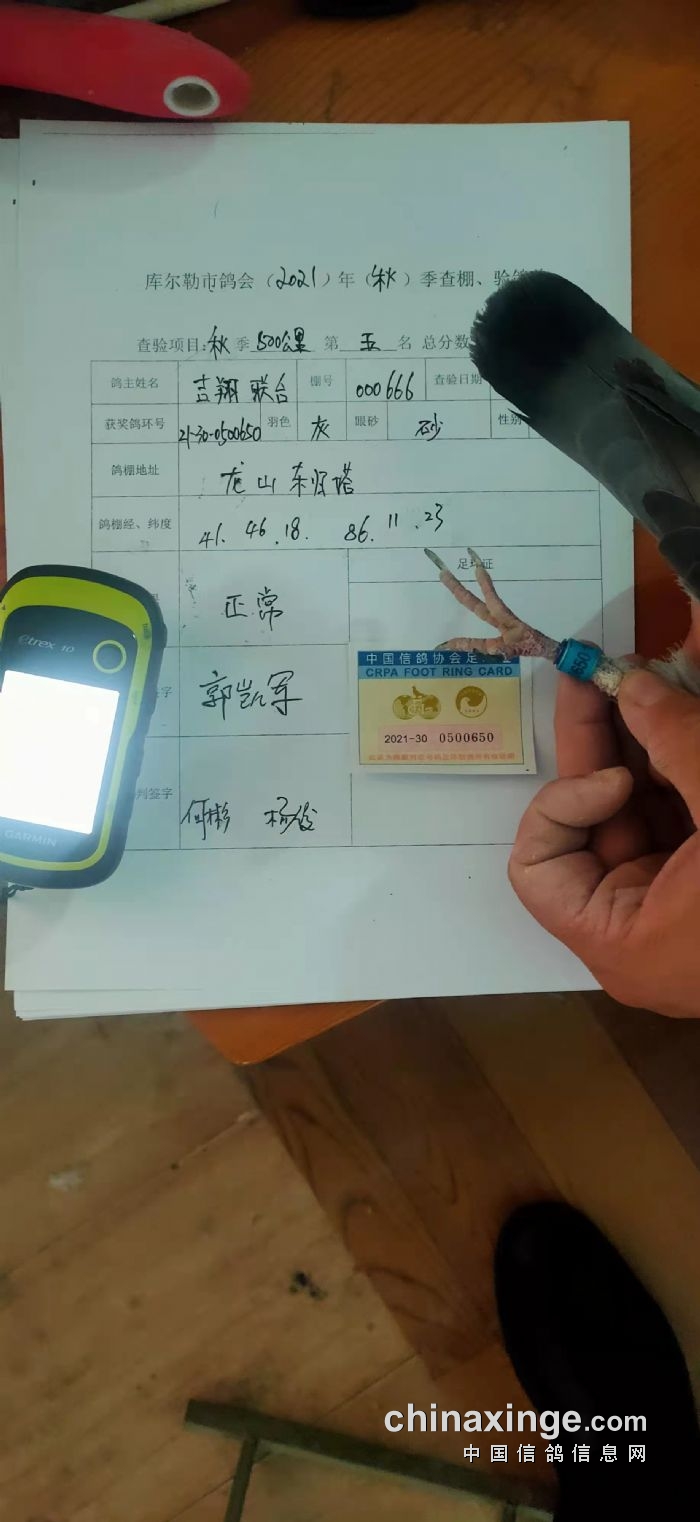 库尔勒市鸽会(2021)年(秋)季查棚、验鸽单
查验项目:秋季 500公里 第 五 名 总分数
鸽主姓名 吉翔联合 棚号 000666 查验日期
获奖鸽环号 21-30-0500650 羽色 灰 眼砂 砂 性别
鸽棚地址 龙山东归塔
鸽棚经、纬度 41. 46. 18. 86. 11. 23
足环证
正常
字 郭凯军
判签字 何彬 杨俊
中国信鸽协会足 证
CRPA FOOT RING CARD
2021-30 0500650
etrex 10
GARMIN
650
chinaxinge.com
中国信鸽信息网